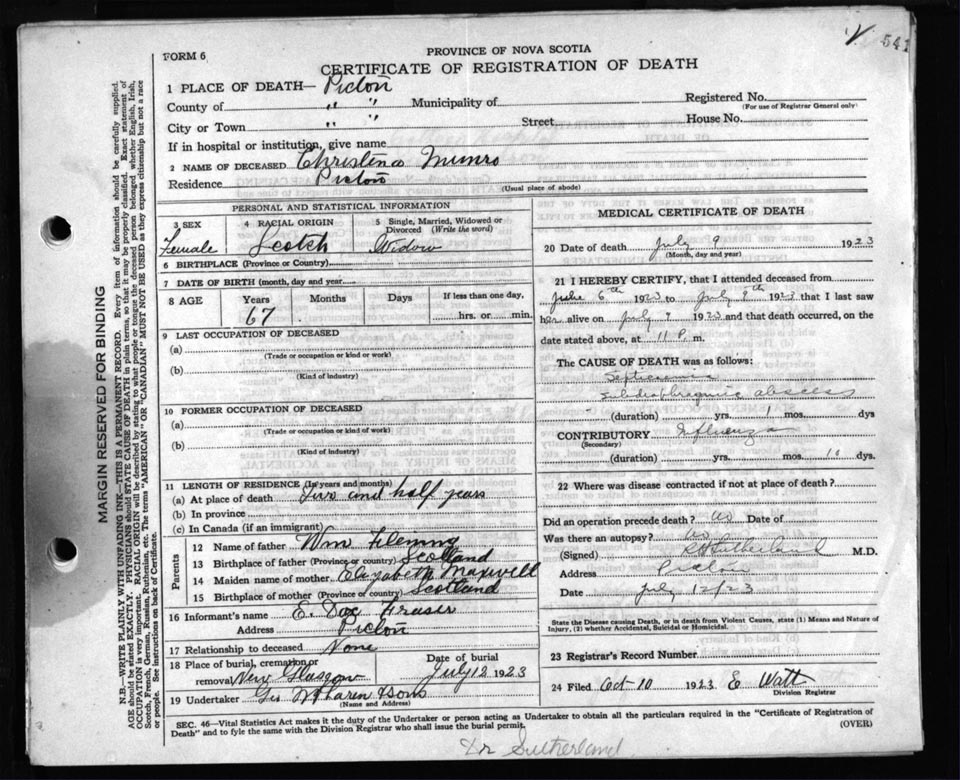 541
FORM 6
PROVINCE OF NOVA SCOTIA
CERTIFICATE OF REGISTRATION OF DEATH
1 PLACE OF DEATH— Pictou
County of " " Municipality of
Registered No.
(For use of Registrar General only)
City or Town " " Street House No.
If in hospital or institution, give name
2 NAME OF DECEASED Christina Munro
Residence Pictou
(Usual place of abode)
PERSONAL AND STATISTICAL INFORMATION
3 SEX
Female
4 RACIAL ORIGIN
Scotch
5 Single, Married, Widowed or Divorced (Write the word)
Widow
6 BIRTHPLACE (Province or Country)
7 DATE OF BIRTH (month, day and year)
8 AGE Years Months Days If less than one day,
67 hrs. or min.
9 LAST OCCUPATION OF DECEASED
(a)
(Trade or occupation or kind or work)
(b)
(Kind of industry)
10 FORMER OCCUPATION OF DECEASED
(a)
(Trade or occupation or kind of work)
(b)
(Kind of industry)
11 LENGTH OF RESIDENCE (In years and months)
(a) At place of death Two and half years
(b) In province
(c) In Canada (if an immigrant)
Parents
12 Name of father Wm Fleming
13 Birthplace of father (Province or country) Scotland
14 Maiden name of mother Elizabeth Maxwell
15 Birthplace of mother (Province or country) Scotland
16 Informant's name E. Fraser
Address Pictou
17 Relationship to deceased None
18 Place of burial, cremation or removal New Glasgow
Date of burial
July 12 1923
19 Undertaker & Sons
(Name and Address)
MEDICAL CERTIFICATE OF DEATH
20 Date of death July 9 1923
(Month, day and year)
21 I HEREBY CERTIFY, that I attended deceased from
June 6th 1923 to July 9th 1923 that I last saw
her alive on July 9 1923 and that death occurred, on the
date stated above, at 11 P. m.
The CAUSE OF DEATH was as follows:
Septicaemia
subdiaphragmic abscess
(duration) yrs. 1 mos. dys
CONTRIBUTORY Influenza
(Secondary)
(duration) yrs. mos. 10 dys.
22 Where was disease contracted if not at place of death?
Did an operation precede death? No Date of
Was there an autopsy? No
(Signed) Sutherland M.D.
Address Pictou
Date July 12/23
State the Disease causing Death, or in death from Violent Causes, state (1) Means and Nature of
Injury, (2) whether Accidental, Suicidal or Homicidal.
23 Registrar's Record Number
24 Filed Oct 10 1923 E Watt
Division Registrar
SEC. 46—Vital Statistics Act makes it the duty of the Undertaker or person acting as Undertaker to obtain all the particulars required in the "Certificate of Registration of
Death" and to fyle the same with the Division Registrar who shall issue the burial permit.
(OVER)
Dr Sutherland
MARGIN RESERVED FOR BINDING
N.B.—WRITE PLAINLY WITH UNFADING INK—THIS IS A PERMANENT RECORD. Every item of information should be carefully supplied.
AGE should be stated EXACTLY. PHYSICIANS should STATE CAUSE OF DEATH in plain terms, so that it may be properly classified. Exact statement of
OCCUPATION is very important. RACIAL ORIGIN will be described by stating to what people or tongue the deceased person belonged whether English, Irish,
Scotch, French, German, Russian, Ruthenian, etc. The terms "AMERICAN" OR "CANADIAN" MUST NOT BE USED as they express citizenship but not a race
or people. See instructions on back of Certificate.